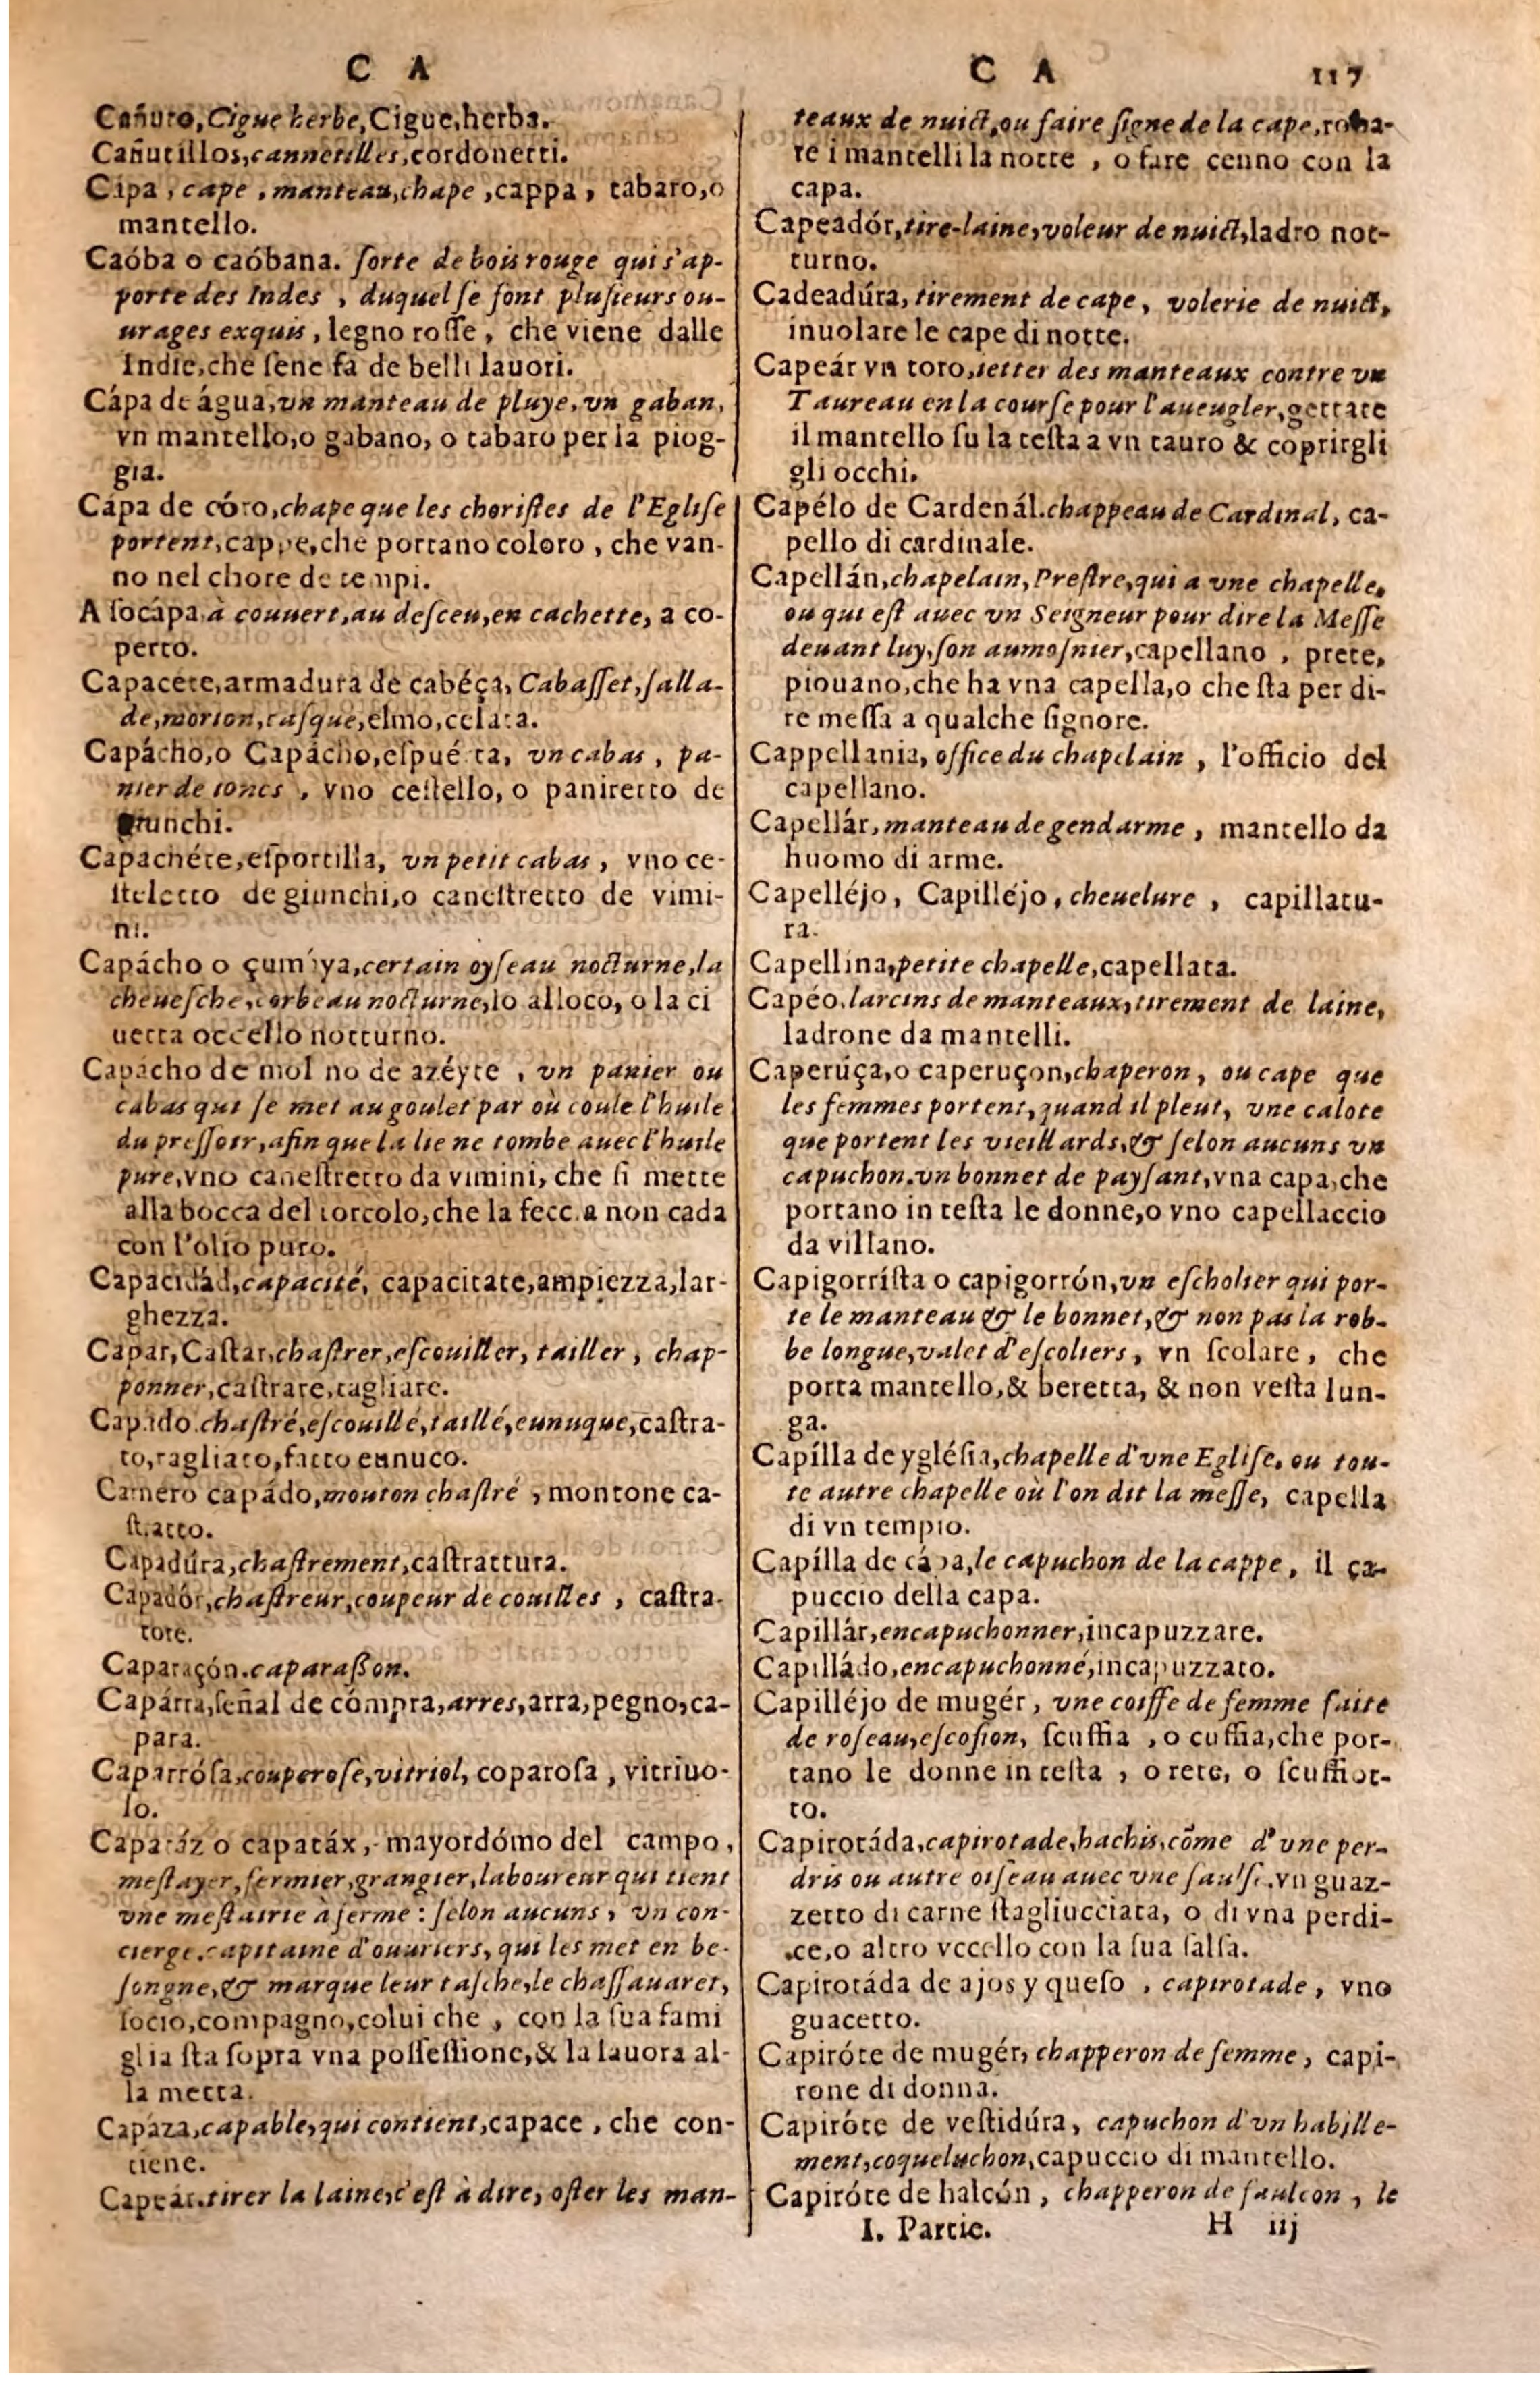 C A
Cañuto, Cigue herbe, Cigue, herba.
Cañutillos, cannetilles, cordonetti.
Cápa, cape, manteau, chape, cappa, tabaro, o
mantello.
Caóba o caóbana. ſorte de bois rouge qui s'ap-
porte des Indes, duquel ſe font pluſieurs ou-
urages exquis, legno roſſe, che viene dalle
Indie, che ſene fà de belli lauori.
Cápa de água, vn manteau de pluye, vn gaban,
vn mantello, o gabano, o tabaro per la piog-
gia.
Cápa de córo, chape que les choriſtes de l'Egliſe
portent, cappe, che portano coloro, che van-
no nel chore de tempi.
A ſocápa à couuert, au deſceu, en cachette, a co-
perto.
Capacéte, armadura de cabéça, Cabaſſet, ſalla-
de, morion, caſque, elmo, celata.
Capácho, o Capácho, eſpuérta, vn cabas, pa-
nier de ioncs, vno ceſtello, o paniretto de
giunchi.
Capachéte, eſportilla, vn petit cabas, vno ce-
ſteletto de giunchi, o caneſtretto de vimi-
ni.
Capácho o çumáya, certain oyſeau nocturne, la
cheueſche, corbeau nocturne, lo alloco, o la ci
uetta occello notturno.
Capácho de molino de azéyte, vn panier ou
cabas qui ſe met au goulet par où coule l'huile
du preſſoir, afin que la lie ne tombe auec l'huile
pure, vno caneſtretto da vimini, che ſi mette
alla bocca del torcolo, che la fecc.a non cada
con l'olio puro.
Capacidád, capacité, capacitate, ampiezza, lar-
ghezza.
Capar, Caſtar, chaſtrer, eſcouiller, tailler, chap-
ponner, caſtrare, tagliare.
Capado. chaſtré, eſcouillé, taillé, eunuque, caſtra-
to, tagliato, fatto eunuco.
Carnero capádo, mouton chaſtré, montone ca-
ſtratto.
Capadúra, chaſtrement, caſtrattura.
Capadór, chaſtreur, coupeur de couilles, caſtra-
tore.
Caparaçón. caparaßon.
Capárra, ſeñal de cómpra, arres, arra, pegno, ca-
para.
Caparróſa, couperoſe, vitriol, coparoſa, vitriuo-
lo.
Capatáz o capatáx, mayordómo del campo,
meſtayer, fermier, grangier, laboureur qui tient
vne meſtairie à ferme: ſelon aucuns, vn con-
cierge. capitaine d'ouuriers, qui les met en be-
ſongne, & marque leur taſche, le chaſſauaret,
ſocio, compagno, colui che, con la ſua fami
glia ſta ſopra vna poſſeſſione, & la lauora al-
la metta.
Capáza, capable, qui contient, capace, che con-
tiene.
Capeár. tirer la laine, c'eſt à dire, oſter les man-
C A 117
teaux de nuict, ou faire ſigne de la cape, roba-
re i mantelli la notte, o fare cenno con la
capa.
Capeadór, tire-laine, voleur de nuict, ladro not-
turno.
Cadeadúra, tirement de cape, volerie de nuict,
inuolare le cape di notte.
Capeár vn toro, ietter des manteaux contre vn
Taureau en la courſe pour l'aueugler, gettare
il mantello ſu la teſta a vn tauro & coprirgli
gli occhi.
Capélo de Cardenál. chappeau de Cardinal, ca-
pello di cardinale.
Capellán, chapelain, Preſtre, qui a vne chapelle,
ou qui eſt auec vn Seigneur pour dire la Meſſe
deuant luy, ſon aumoſnier, capellano, prete,
piouano, che ha vna capella, o che ſta per di-
re meſſa a qualche ſignore.
Cappellania, office du chapelain, l'officio del
capellano.
Capellár, manteau de gendarme, mantello da
huomo di arme.
Capelléjo, Capilléjo, cheuelure, capillatu-
ra.
Capellina, petite chapelle, capellata.
Capéo. larcins de manteaux, tirement de laine,
ladrone da mantelli.
Caperúça, o caperuçon, chaperon, ou cape que
les femmes portent, quand il pleut, vne calote
que portent les vieillards, & ſelon aucuns vn
capuchon. vn bonnet de payſant, vna capa, che
portano in teſta le donne, o vno capellaccio
da villano.
Capigorríſta o capigorrón, vn eſcholier qui por-
te le manteau & le bonnet, & non pas la rob-
be longue, valet d'eſcoliers, vn ſcolare, che
porta mantello, & beretta, & non veſta lun-
ga.
Capílla de ygléſia, chapelle d'vne Egliſe. ou tou-
te autre chapelle où l'on dit la meſſe, capella
di vn tempio.
Capílla de cápa, le capuchon de la cappe, il ça-
puccio della capa.
Capillár, encapuchonner, incapuzzare.
Capilládo, encapuchonné, incapuzzato.
Capilléjo de mugér, vne coiffe de femme faite
de roſeau, eſcoſion, ſcuffia, o cuffia, che por-
tano le donne in teſta, o rete, o ſcuffiot-
to.
Capirotáda, capirotade, hachis, cõme d'vne per-
dris ou autre oiſeau auec vne ſaulſe. vn guaz-
zetto di carne ſtagliucciata, o di vna perdi-
ce, o altro vccello con la ſua ſalſa.
Capirotáda de ajos y queſo, capirotade, vno
guacetto.
Capiróte de mugér, chapperon de femme, capi-
rone di donna.
Capiróte de veſtidúra, capuchon d'vn habille-
ment, coqueluchon, capuccio di mantello.
Capiróte de halcón, chapperon de faulcon, le
I. Partie. H iij